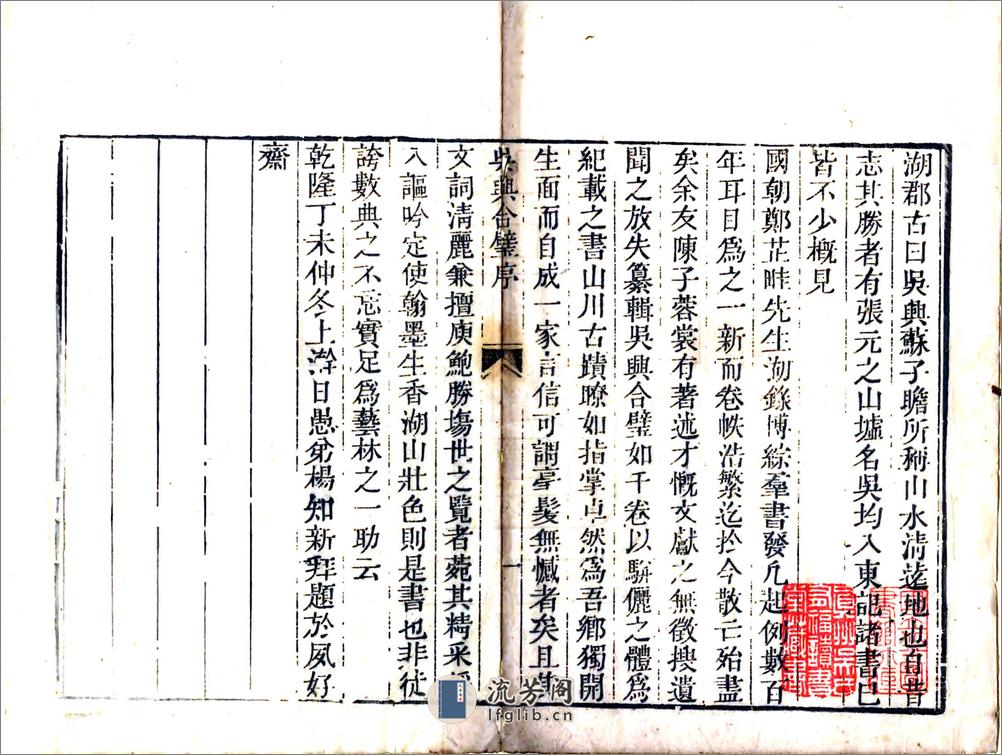 湖郡古曰吳興蘇子瞻所稱山水清遠地也自昔
志其勝者有張元之山墟名吳均入東記諸書已
皆不少概見
國朝鄭芷畦先生湖錄博綜羣書發凡起例數百
年耳目爲之一新而卷帙浩繁迄於今散亡殆盡
矣余友陳子蓉裳有著述才慨文獻之無徵搜遺
聞之放失纂輯吳興合璧如干卷以駢儷之體爲
紀載之書山川古蹟瞭如指掌卓然爲吾鄉獨開
生面而自成一家言信可謂毫髮無憾者矣且其
吳興合璧序
一
文詞淸麗兼擅庾鮑勝塲世之覽者菀其精采
入謳吟定使翰墨生香湖山壯色則是書也非徒
誇數典之不忘實足爲藝林之一助云
乾隆丁未仲冬上澣日愚弟楊知新拜題於夙好
齋
流芳閣
lfglib.cn